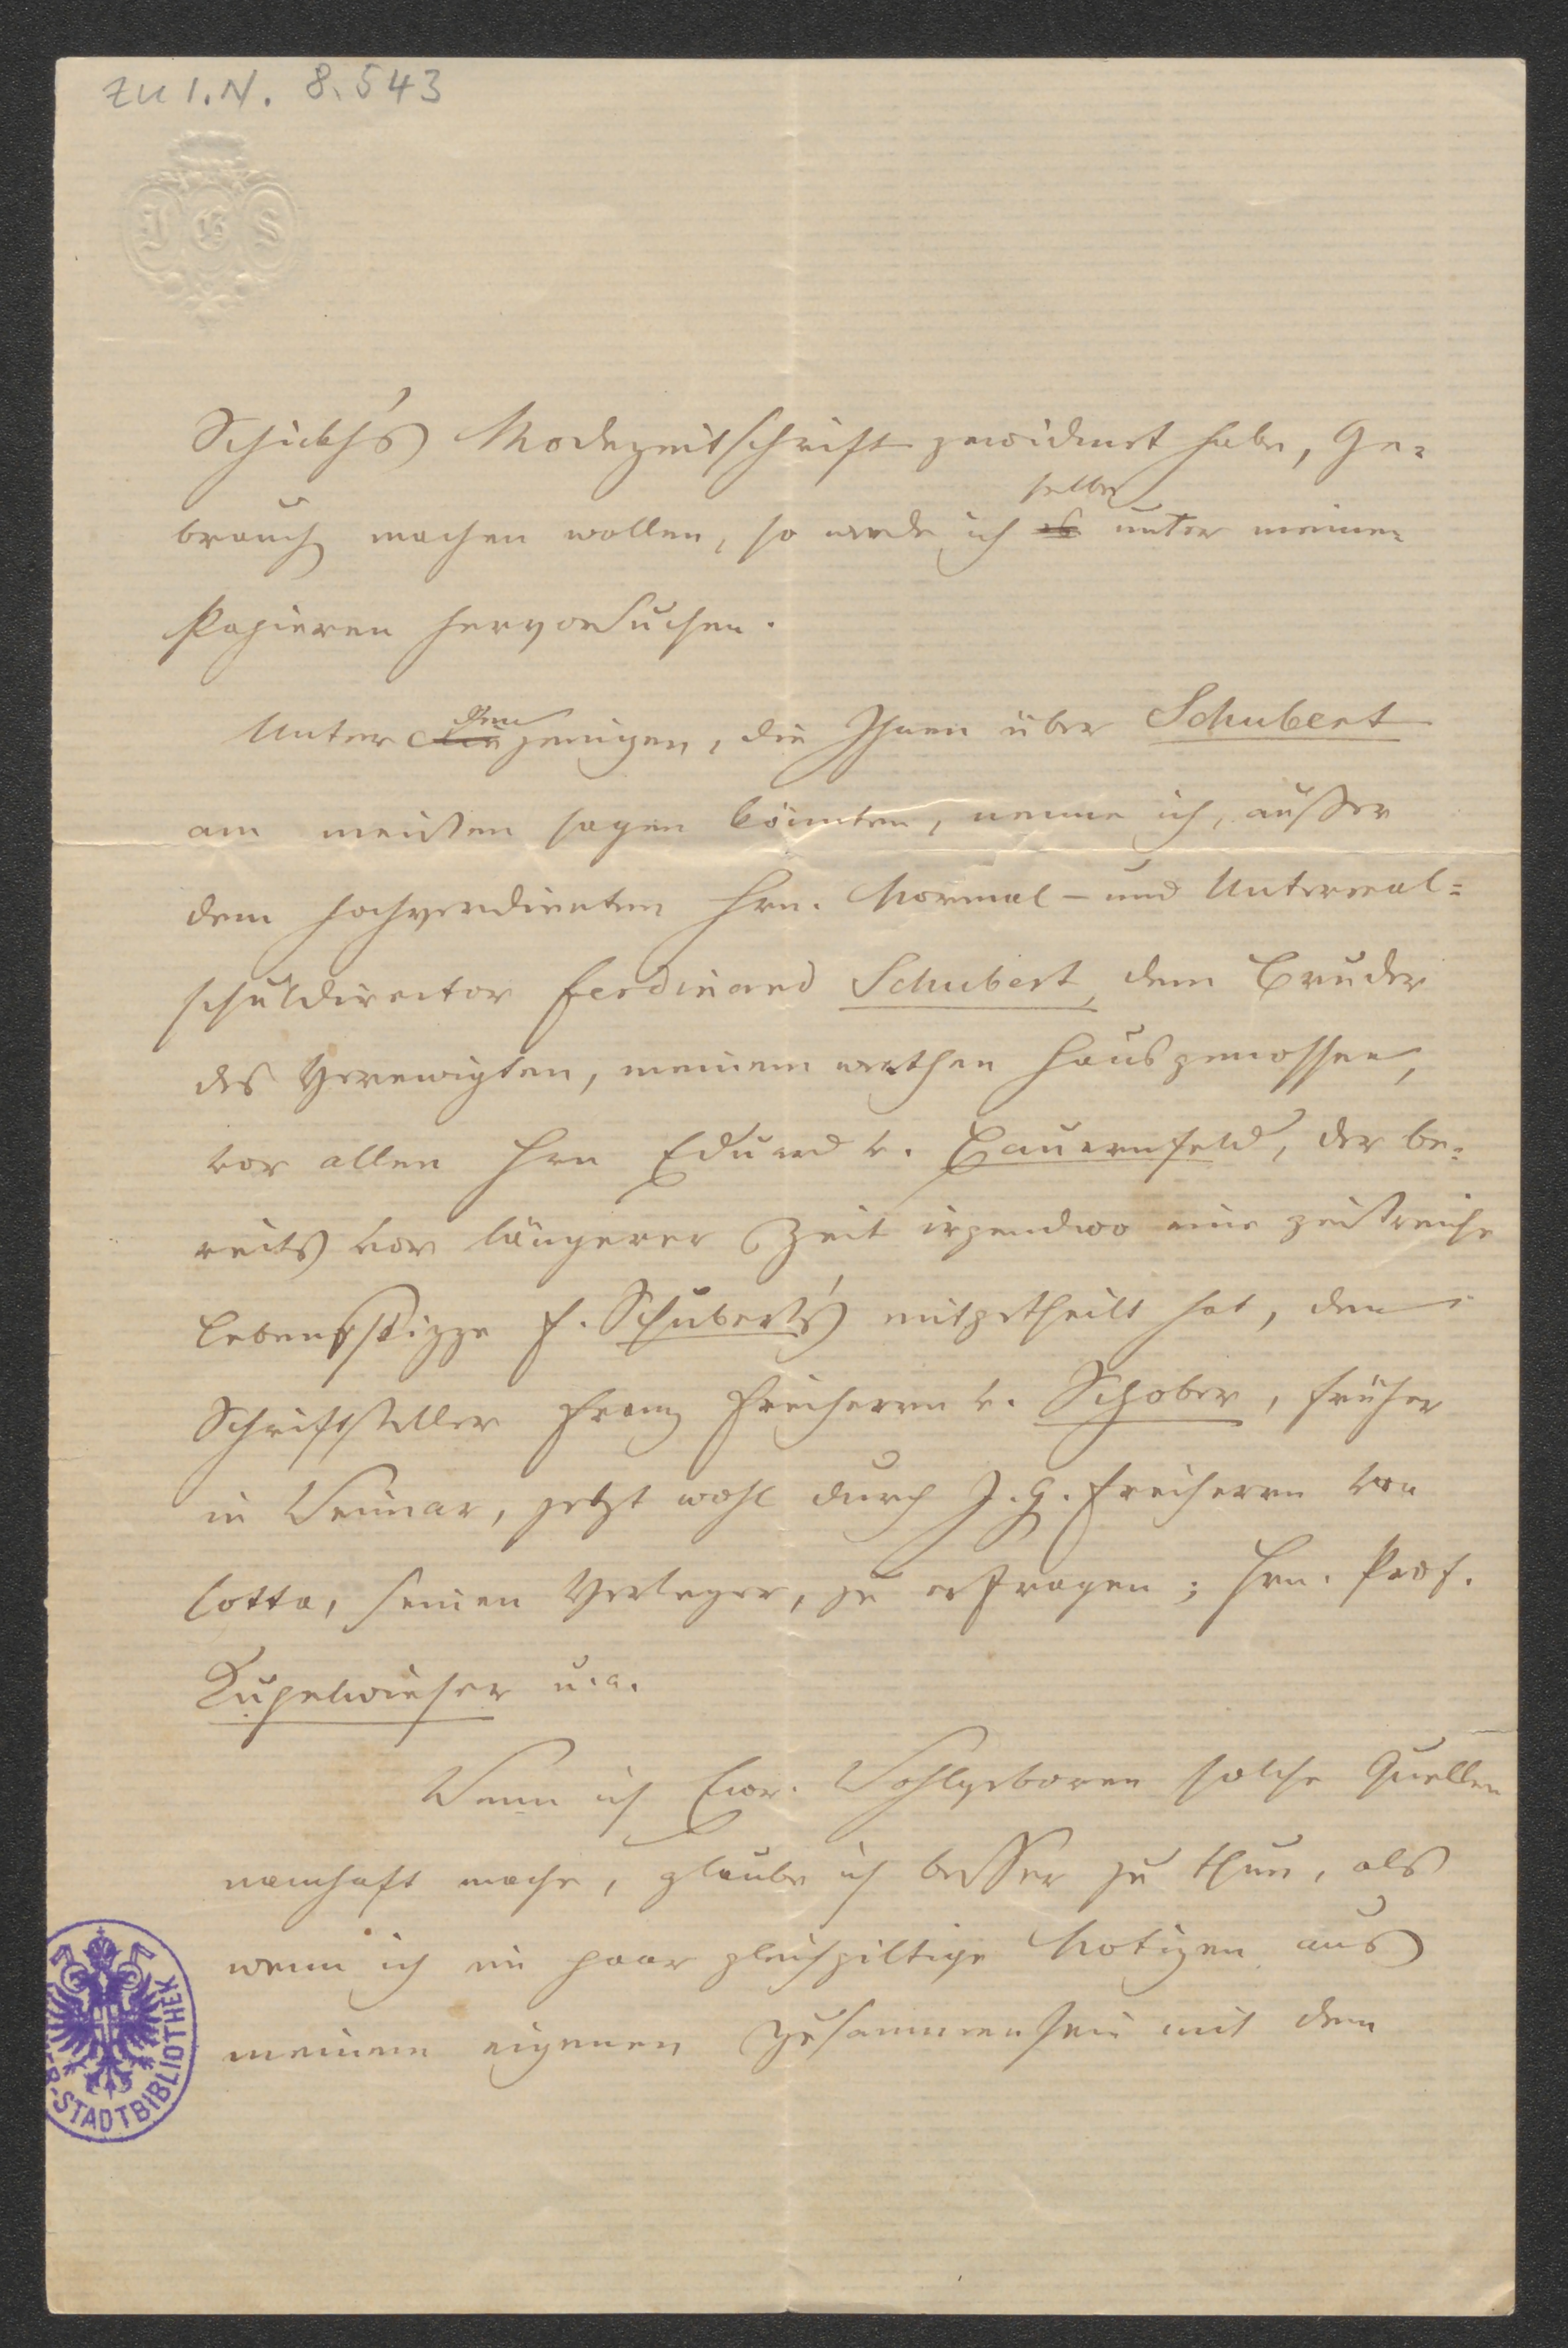 zu I.N. 8.543
J G S
Schickh's Modezeitschrift gewidmet habe, Ge-
selbe
brauch machen wollen, so werde ich es unter meinen
Papieren hervorsuchen.
den
Unter diejenigen, die Ihnen über Schubert
am meisten sagen könnten, nenne ich, ausser
dem hochverdienten Hrn. Normal- und Unterreal-
schuldirector Ferdinand Schubert, dem Bruder
des Verewigten, meinem werthen Hausgenossen,
vor allen Hrn Eduard v. Bauernfeld, der be-
reits vor längerer Zeit irgendwo eine geistreiche
Lebensskizze F. Schubert's mitgetheilt hat, den
Schriftsteller Franz Freiherrn v. Schober, früher
in Weimar, jetzt wohl durch J. G. Freiherrn von
Cotta, seinen Verleger, zu erfragen; Hrn. Prof.
Kupelwieser u. a.
Wenn ich Euer. Wohlgeboren solche Quellen
namhaft mache, glaube ich besser zu thun, als
wenn ich ein paar gleichgiltige Notizen aus
meinem eigenen Zusammensein mit dem
STADTBIBLIOTHEK